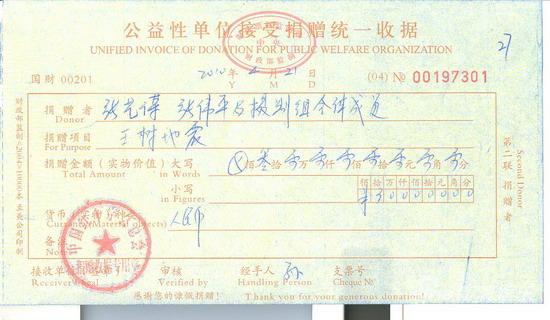 公益性单位接受捐赠统一收据
UNIFIED INVOICE OF DONATION FOR PUBLIC WELFARE ORGANIZATION
27
国财 00201
2010 4 21
Y M D
(04) № 00197301
捐赠者 张艺谋 张伟平与摄制组全体成员
Donor
捐赠项目 玉树地震
For Purpose
捐赠金额（实物价值）大写 佰叁拾万仟佰拾元角分
Total Amount in Words
小写 佰拾万仟佰拾元角分
in Figures ¥30000000
人民币
Currency(Material objects)
接收单位 审核 经手人 孙 支票号
Receiver's Seal Verified by Handling Person Cheque №
感谢您的慷慨捐赠！ Thank you for your generous donation!
第二联 捐赠者
Second Donor